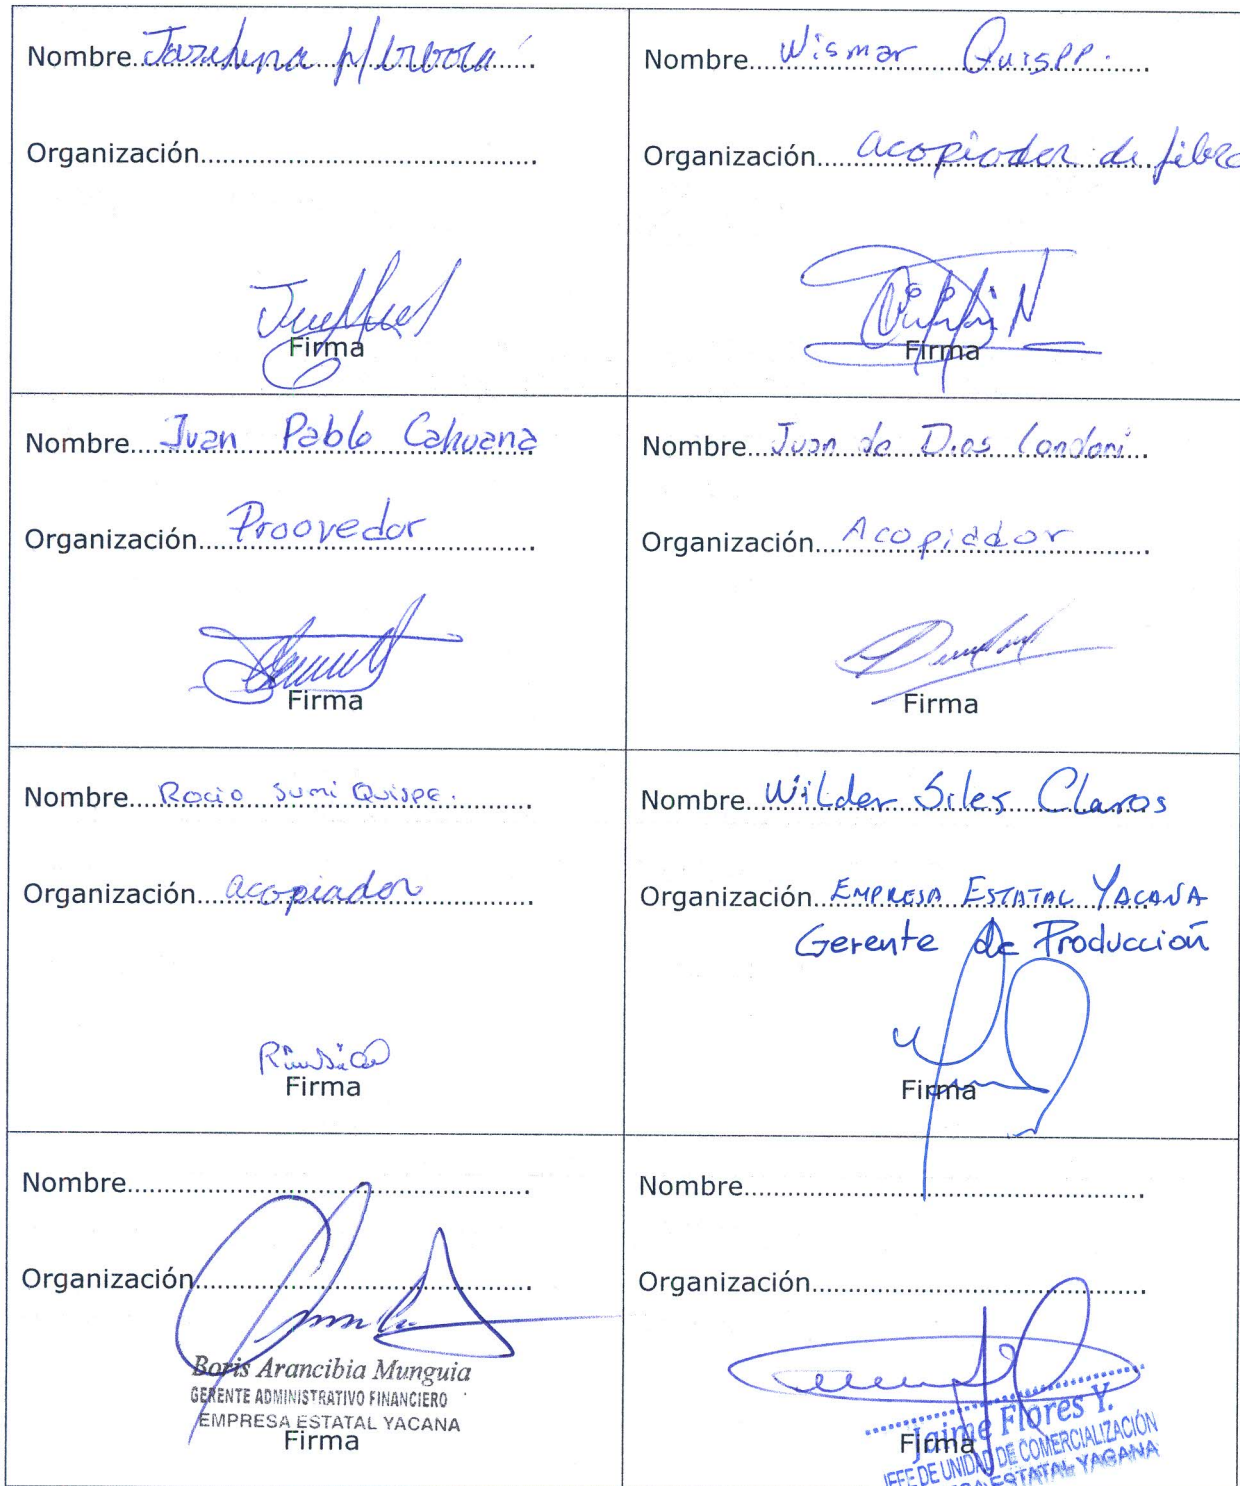 Nombre
Organización
Firma
Nombre Wismar Quispe.
Organización acopiador de fibra
Firma
Nombre Juan Pablo Cahuana
Organización Proovedor
Firma
Nombre Juan de Dios Condori
Organización Acopiador
Firma
Nombre Rocio Sumi Quispe.
Organización acopiador
Firma
Nombre Wilder Siles Claros
Organización EMPRESA ESTATAL YACANA
Gerente de Producción
Firma
Nombre
Organización
Boris Arancibia Munguia
GERENTE ADMINISTRATIVO FINANCIERO
EMPRESA ESTATAL YACANA
Firma
Nombre
Organización
Jaime Flores Y.
JEFE DE UNIDAD DE COMERCIALIZACIÓN
ESTATAL YACANA
Firma